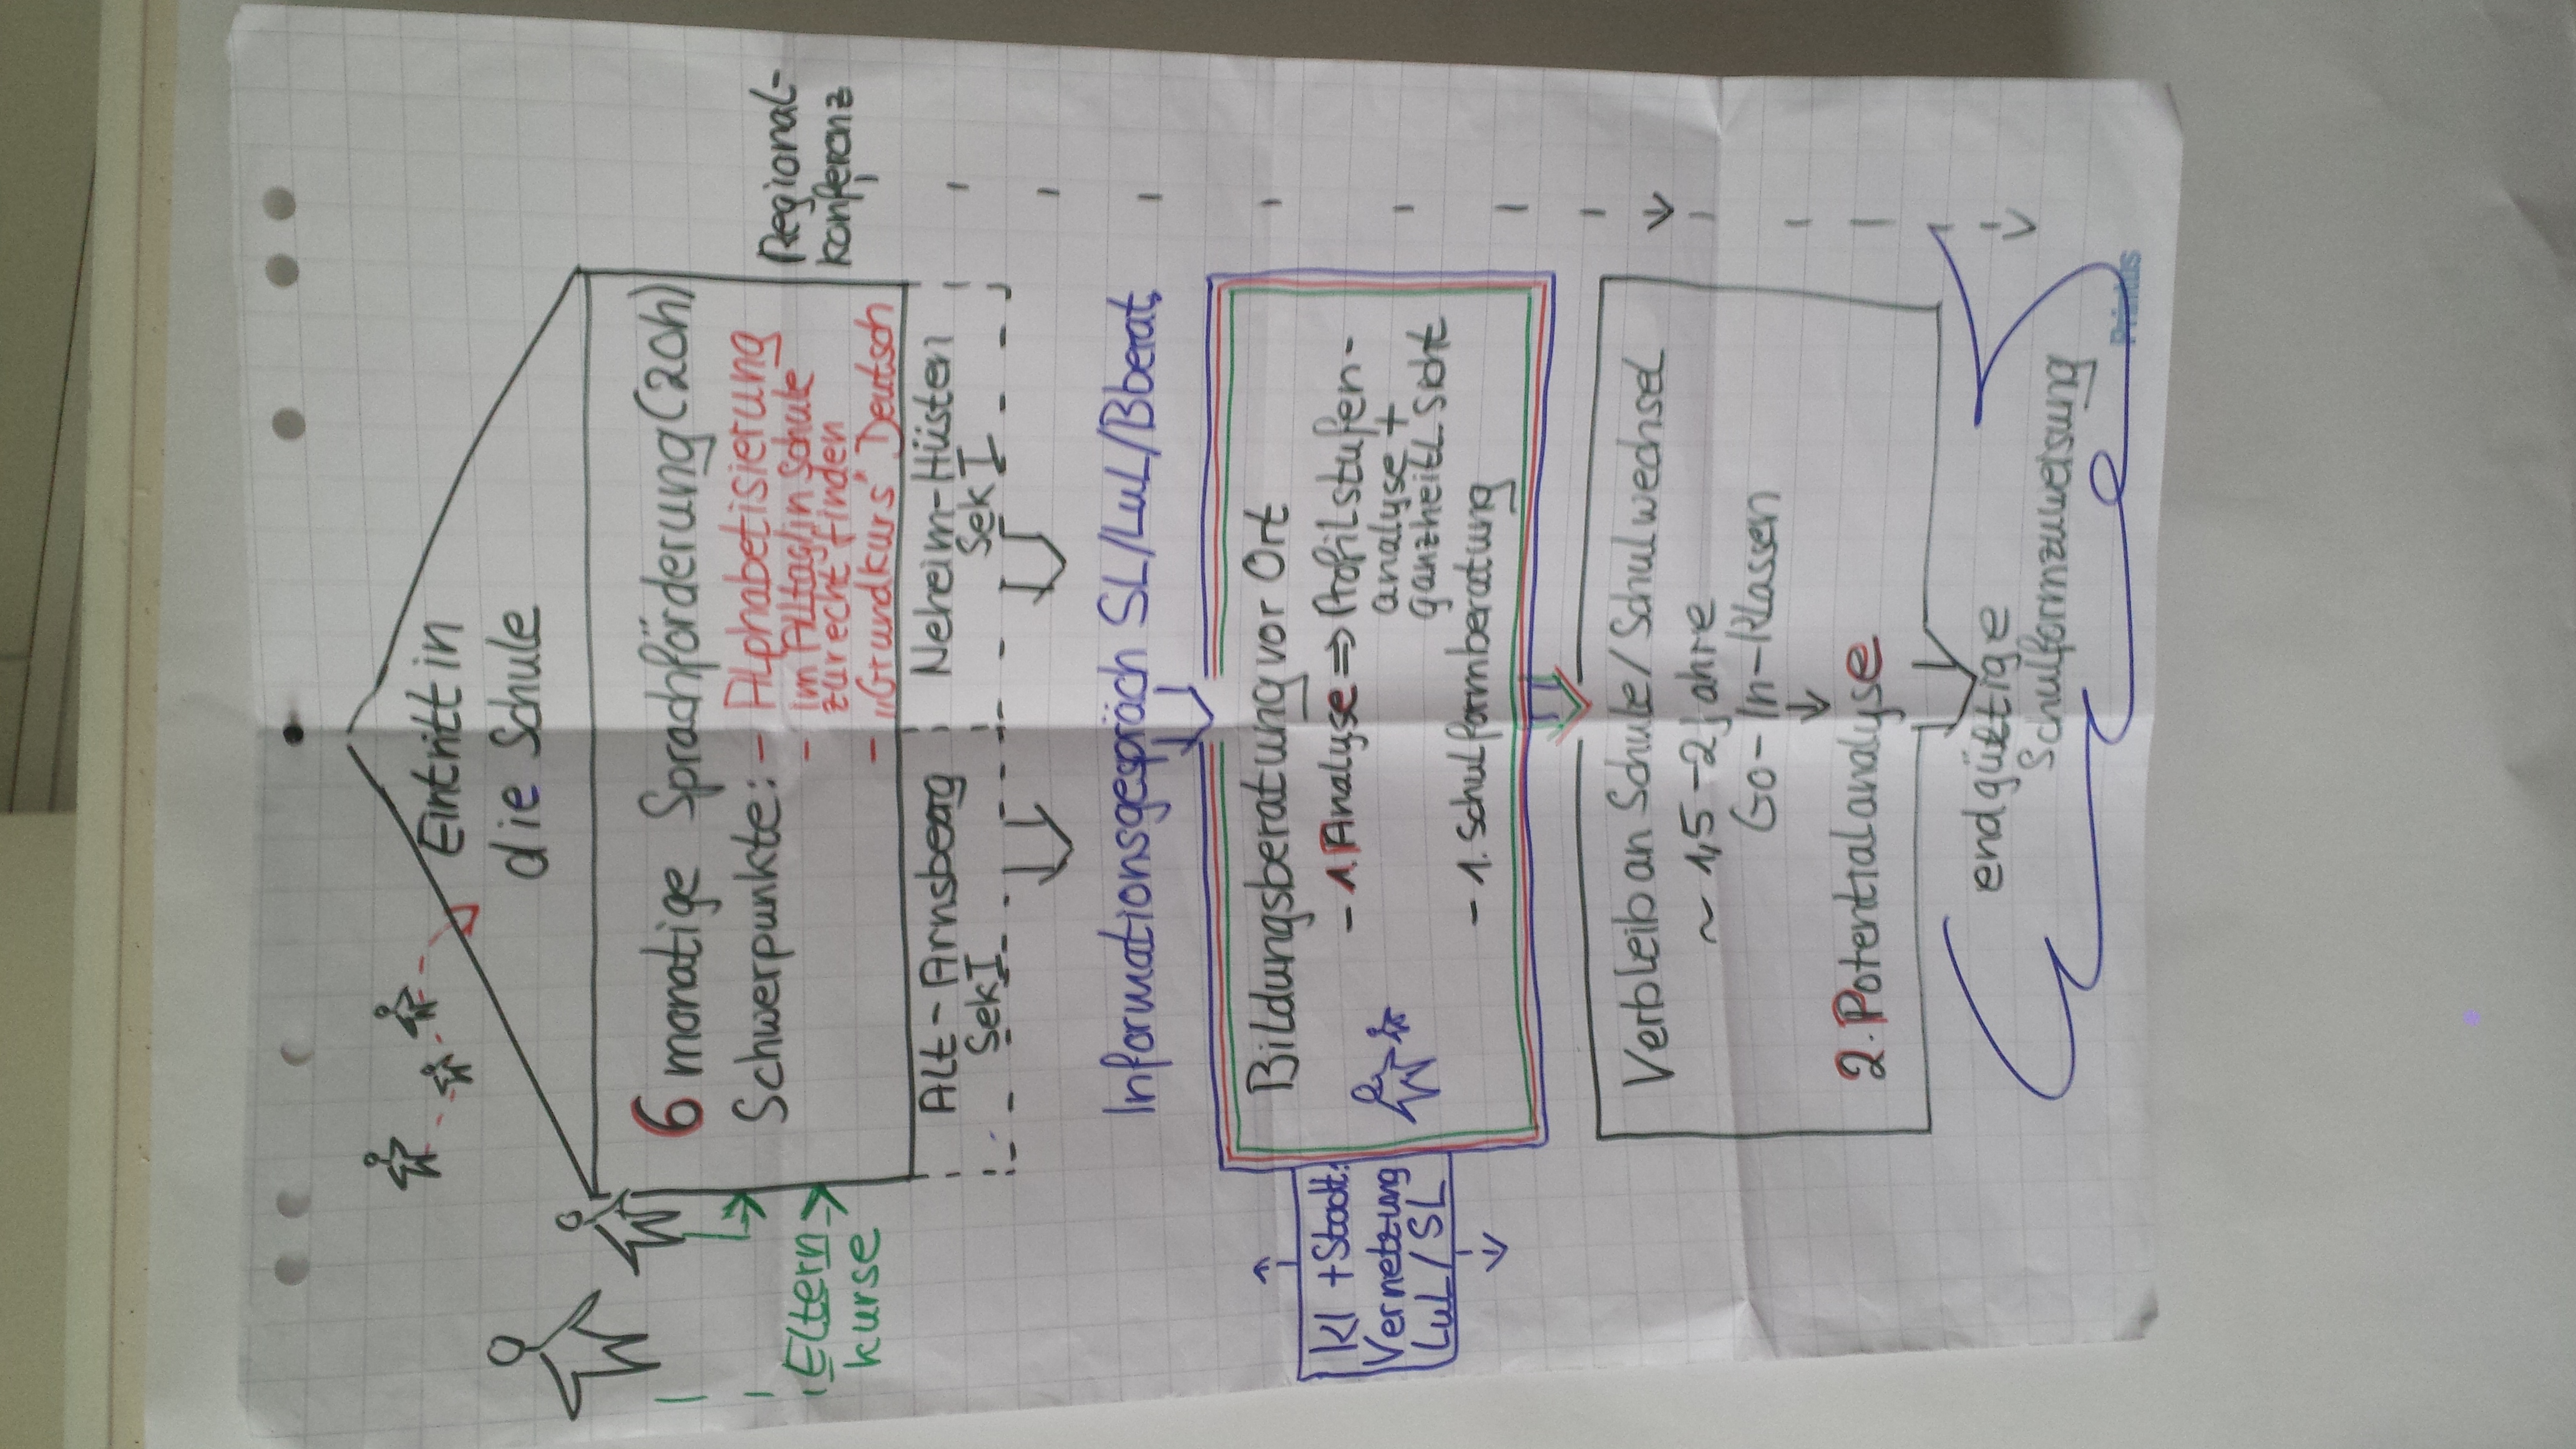 Eintritt in
die Schule
6 monatige Sprachförderung (20h)
Schwerpunkte: - Alphabetisierung
- im Alltag/in Schule
zurecht finden
- "Grundkurs" Deutsch
Eltern-
kurse
Regional-
konferenz
Alt-Arnsberg
Sek I
Neheim-Hüsten
Sek I
Informationsgespräch SL/LuL/Bberat.
Bildungsberatung vor Ort
- 1. Analyse => Profilstufen-
analyse +
ganzheitl. Sicht
- 1. Schulformberatung
KI + Stadt:
Vernetzung
LuL/SL
Verbleib an Schule/Schulwechsel
~ 1,5-2 Jahre
Go-In-Klassen
2. Potentialanalyse
endgültige
Schulformzuweisung
Primus